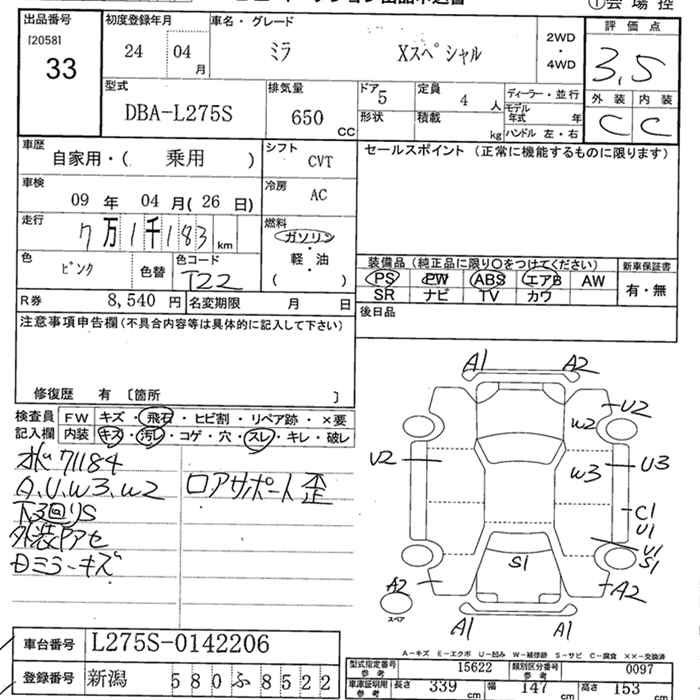 ①会場控
出品番号 初度登録年月 車名・グレード 評価点
[2058]
33
24 04月 ミラ Xスペシャル 2WD・4WD 3,5
型式 排気量 ドア 定員 ディーラー・並行 外装 内装
DBA-L275S 650CC 5 4人 C C
形状 積載 kg モデル年式 年
ハンドル 左・右
車歴 シフト セールスポイント (正常に機能するものに限ります)
自家用・( 乗用 ) CVT
車検 冷房
09年 04月(26日) AC
走行 燃料
7万1千183km ガソリン・軽・油
( )
色 色替 色コード
ピンク T22
装備品(純正品に限り○をつけてください) 新車保証書
PS PW ABS エアB AW 有・無
SR ナビ TV カワ
R券 8,540円 名変期限 月 日
後日品
注意事項申告欄(不具合内容等は具体的に記入して下さい)
修復歴 有 〔箇所 〕
検査員 FW キズ・飛石・ヒビ割・リペア跡・×要
記入欄 内装 キズ・汚レ・コゲ・穴・スレ・キレ・破レ
71184
A、U、W3、W2 ロアサポート歪
下回りS
外装アセ
ミラーキズ
A1 A2
U2
W2
U2 W3 U3
C1
U1
U1
S1
S1
A2 A2
スペア
A1 A1
A-キズ E-エクボ U-凹み W-補修跡 S-サビ C-腐食 ××-交換済
車台番号 L275S-0142206
登録番号 新潟 580 ふ 8522
型式指定番号 15622 類別区分番号 0097
車庫証明用 長さ 339cm 幅 147cm 高さ 153cm